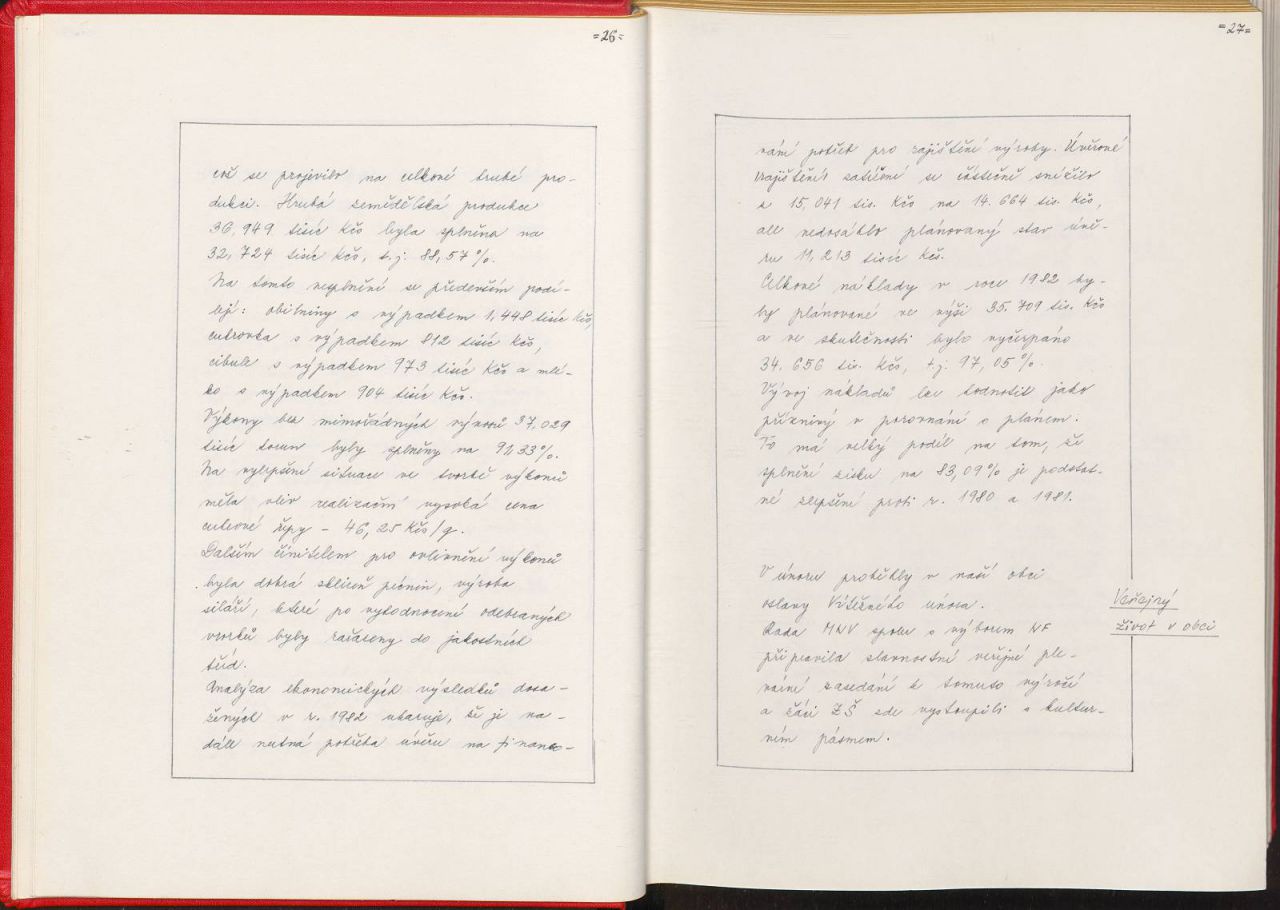 =26=
což se projevilo na celkové hrubé pro-
dukci. Hrubá zemědělská produkce
36,949 tisíc Kčs byla splněna na
32,724 tisíc Kčs, t.j. 88,57%.
Na tomto neplnění se především podí-
lejí: obilniny s výpadkem 1,448 tisíc Kčs,
cukrovka s výpadkem 812 tisíc Kčs,
cibule s výpadkem 973 tisíc Kčs a mlé-
ko s výpadkem 904 tisíc Kčs.
Výkony bez mimořádných výnosů 37,029
tisíc korun byly splněny na 91,33%.
Na vylepšení situace ve tvorbě výkonů
měla vliv realizační vysoká cena
cukrové řepy - 46,25 Kčs/q.
Dalším činitelem pro ovlivnění výkonů
byla dobrá sklizeň pícnin, výroba
siláží, které po vyhodnocení odebraných
vzorků byly zařazeny do jakostních
tříd.
Analýza ekonomických výsledků dosa-
žených v r. 1982 ukazuje, že je na-
dále nutná potřeba úvěru na financo-
=27=
vání potřeb pro zajištění výroby. Úvěrové
zajištění zatížení se částečně snížilo
z 15,041 tis. Kčs na 14.664 tis. Kčs,
ale nedosáhlo plánovaný stav úvě-
ru 11,213 tisíc Kčs.
Celkové náklady v roce 1982 by-
ly plánované ve výši 35.709 tis. Kčs
a ve skutečnosti bylo vyčerpáno
34.656 tis. Kčs, t.j. 97,05%.
Vývoj nákladů lze hodnotit jako
příznivý v porovnání s plánem.
To má velký podíl na tom, že
splnění zisku na 83,09% je podstat-
né zlepšení proti r. 1980 a 1981.
V únoru proběhly v naší obci
oslavy Vítězného února.
Veřejný
život v obci
Rada MNV spolu s výborem NF
připravila slavnostní veřejné ple-
nární zasedání k tomuto výročí
a žáci ZŠ zde vystoupili s kultur-
ním pásmem.